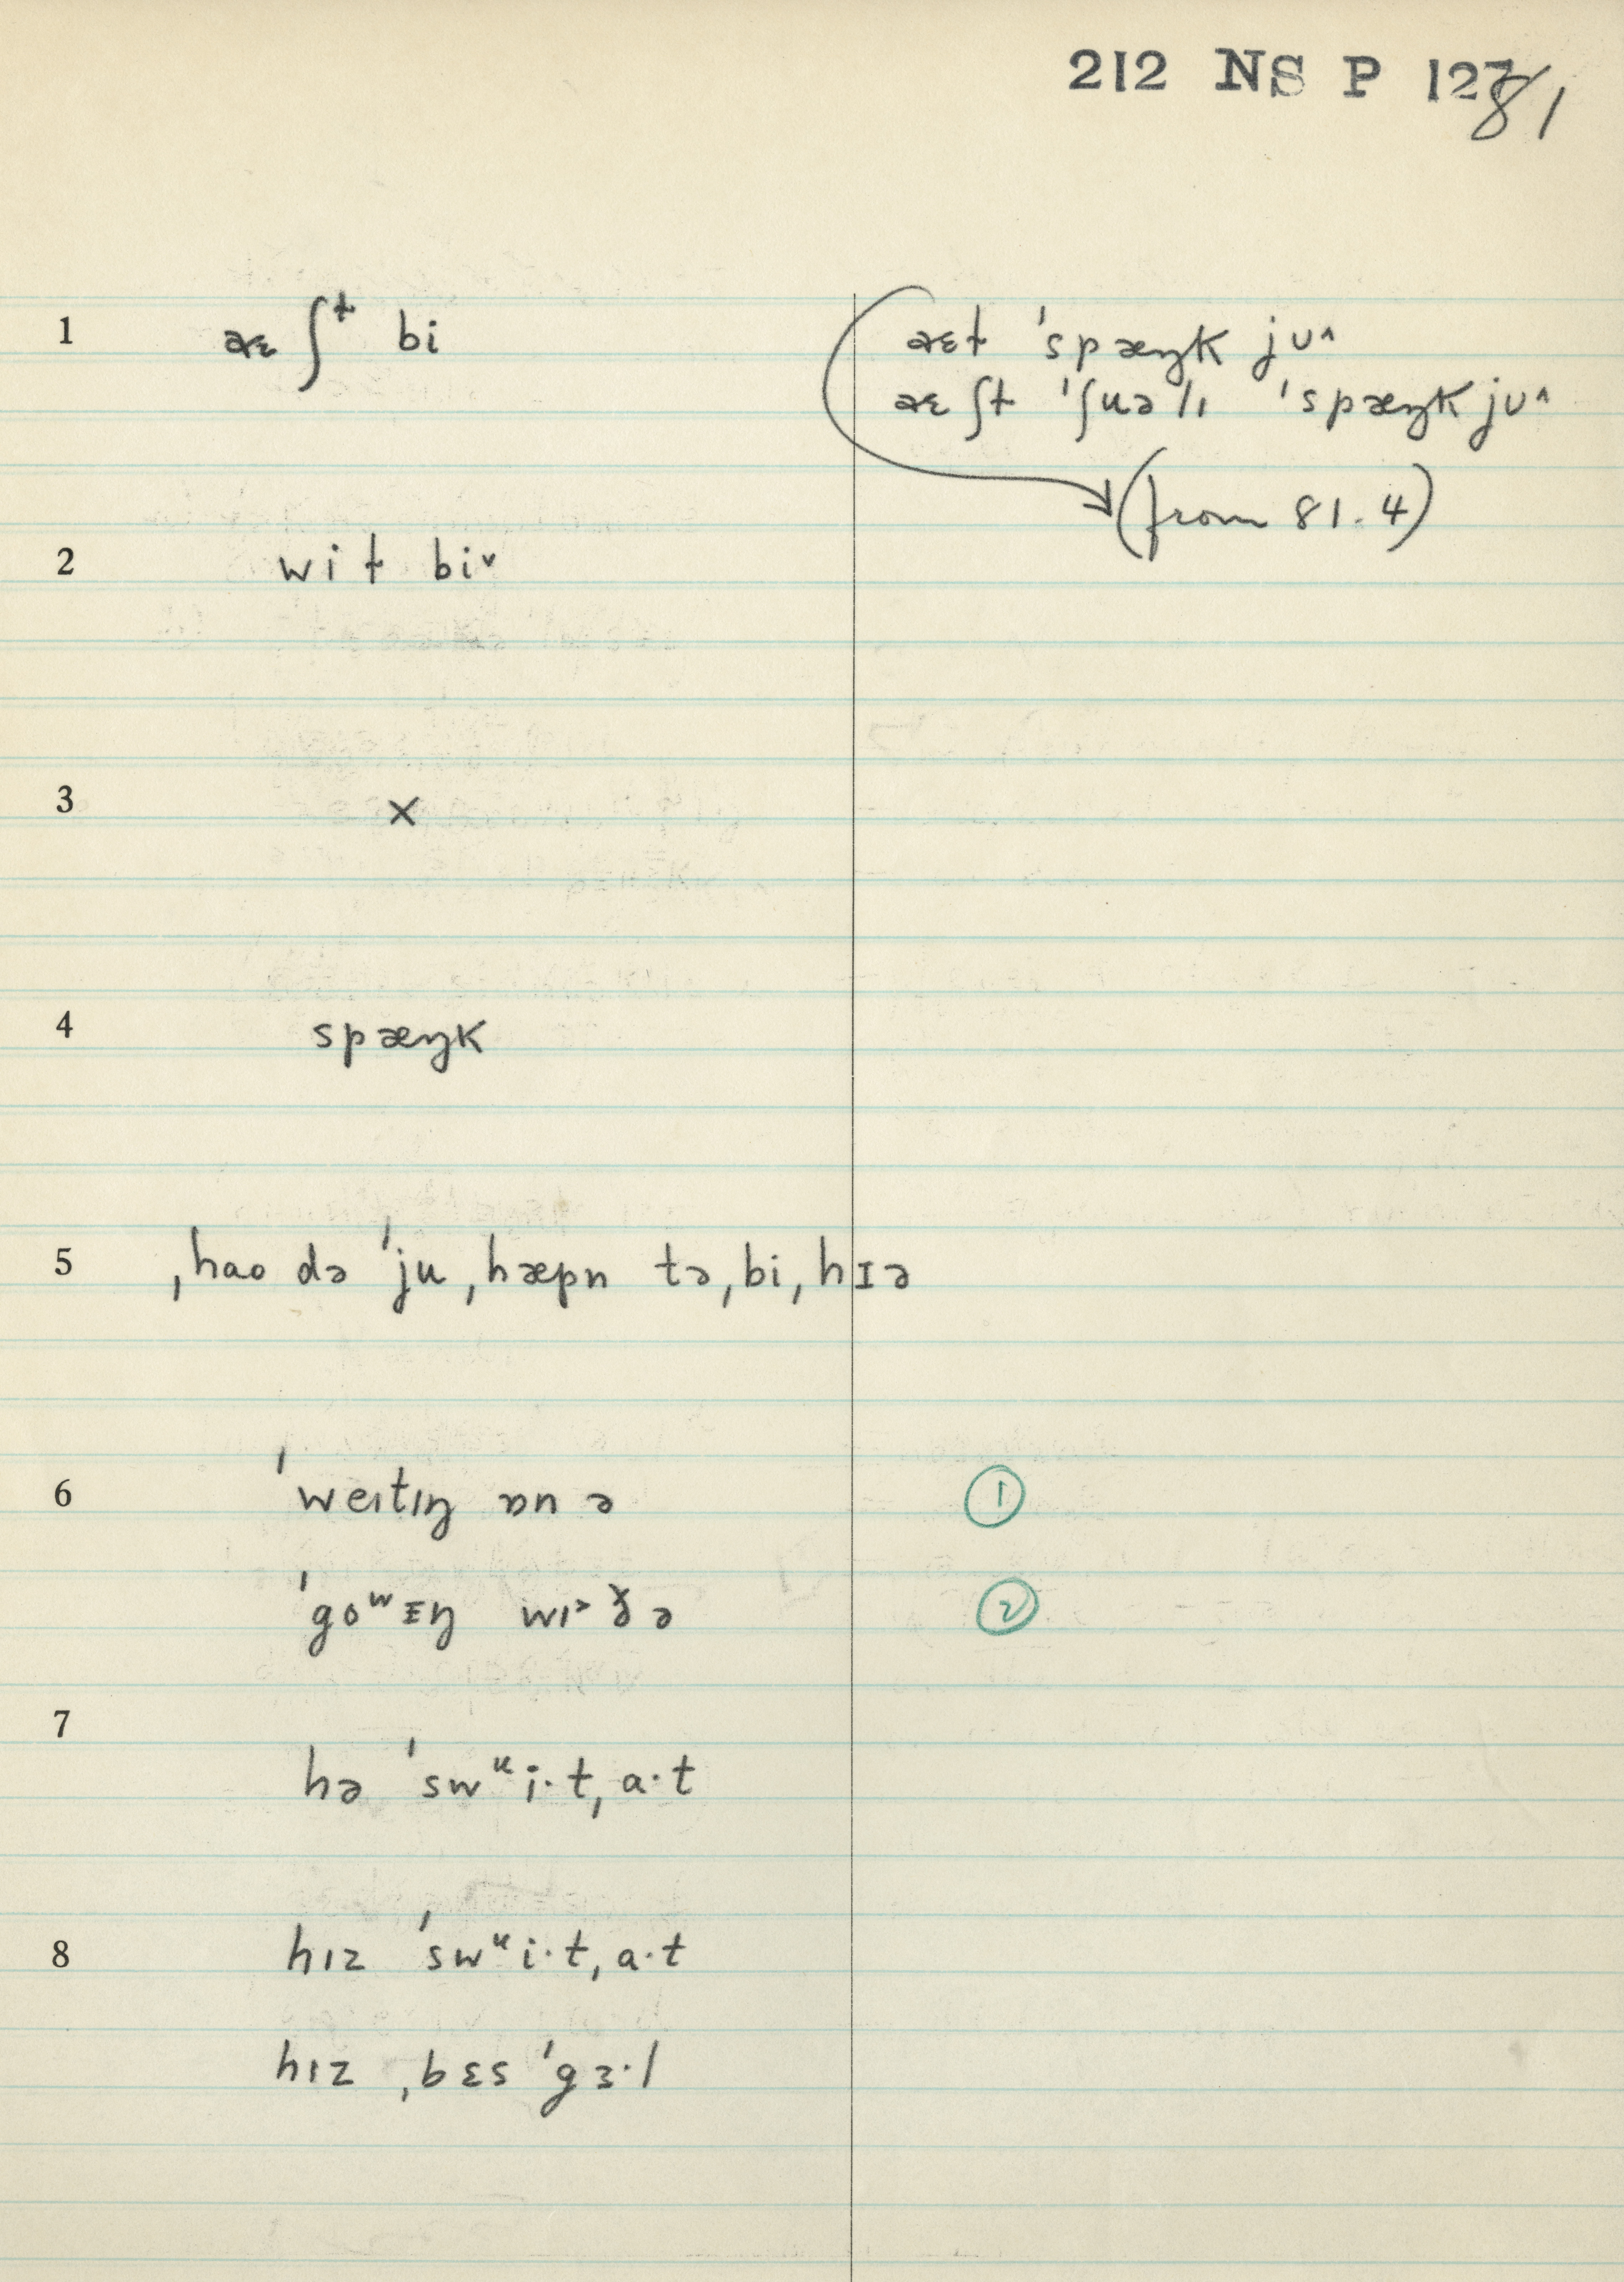 212 NS P 127
81
1 æɛʃᵗ bi
æɛɫ ˈspæŋk jʊ^
æɛʃɫ ˈʃuəlɪ ˈspæŋk jʊ^
(from 81.4)
2 wiɫ biˇ
3 ×
4 spæŋk
5 ˌhao də ˈju ˌhæpn tə ˌbi ˌhɪə
6 ˈweɪtɪŋ ɒn ə ①
ˈgoʷɪŋ wɪ˃ ð ə ②
7 hə ˈswᵘi·t ˌa·t
8 hɪz ˈswᵘi·t ˌa·t
hɪz ˌbɛs ˈgɜ·l